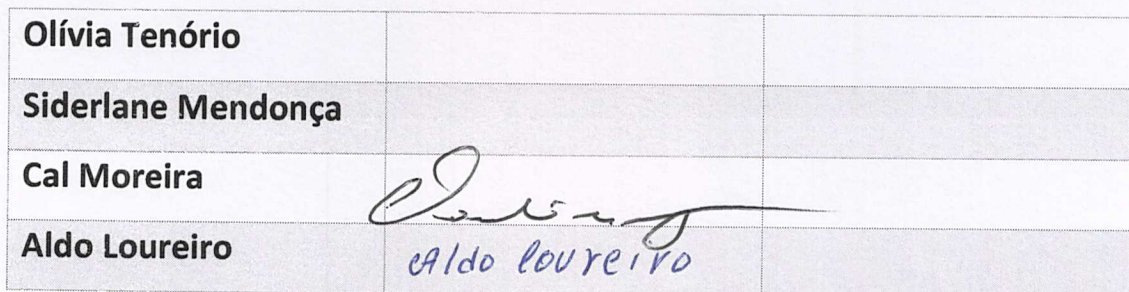 Olívia Tenório
Siderlane Mendonça
Cal Moreira
Aldo Loureiro Aldo Loureiro